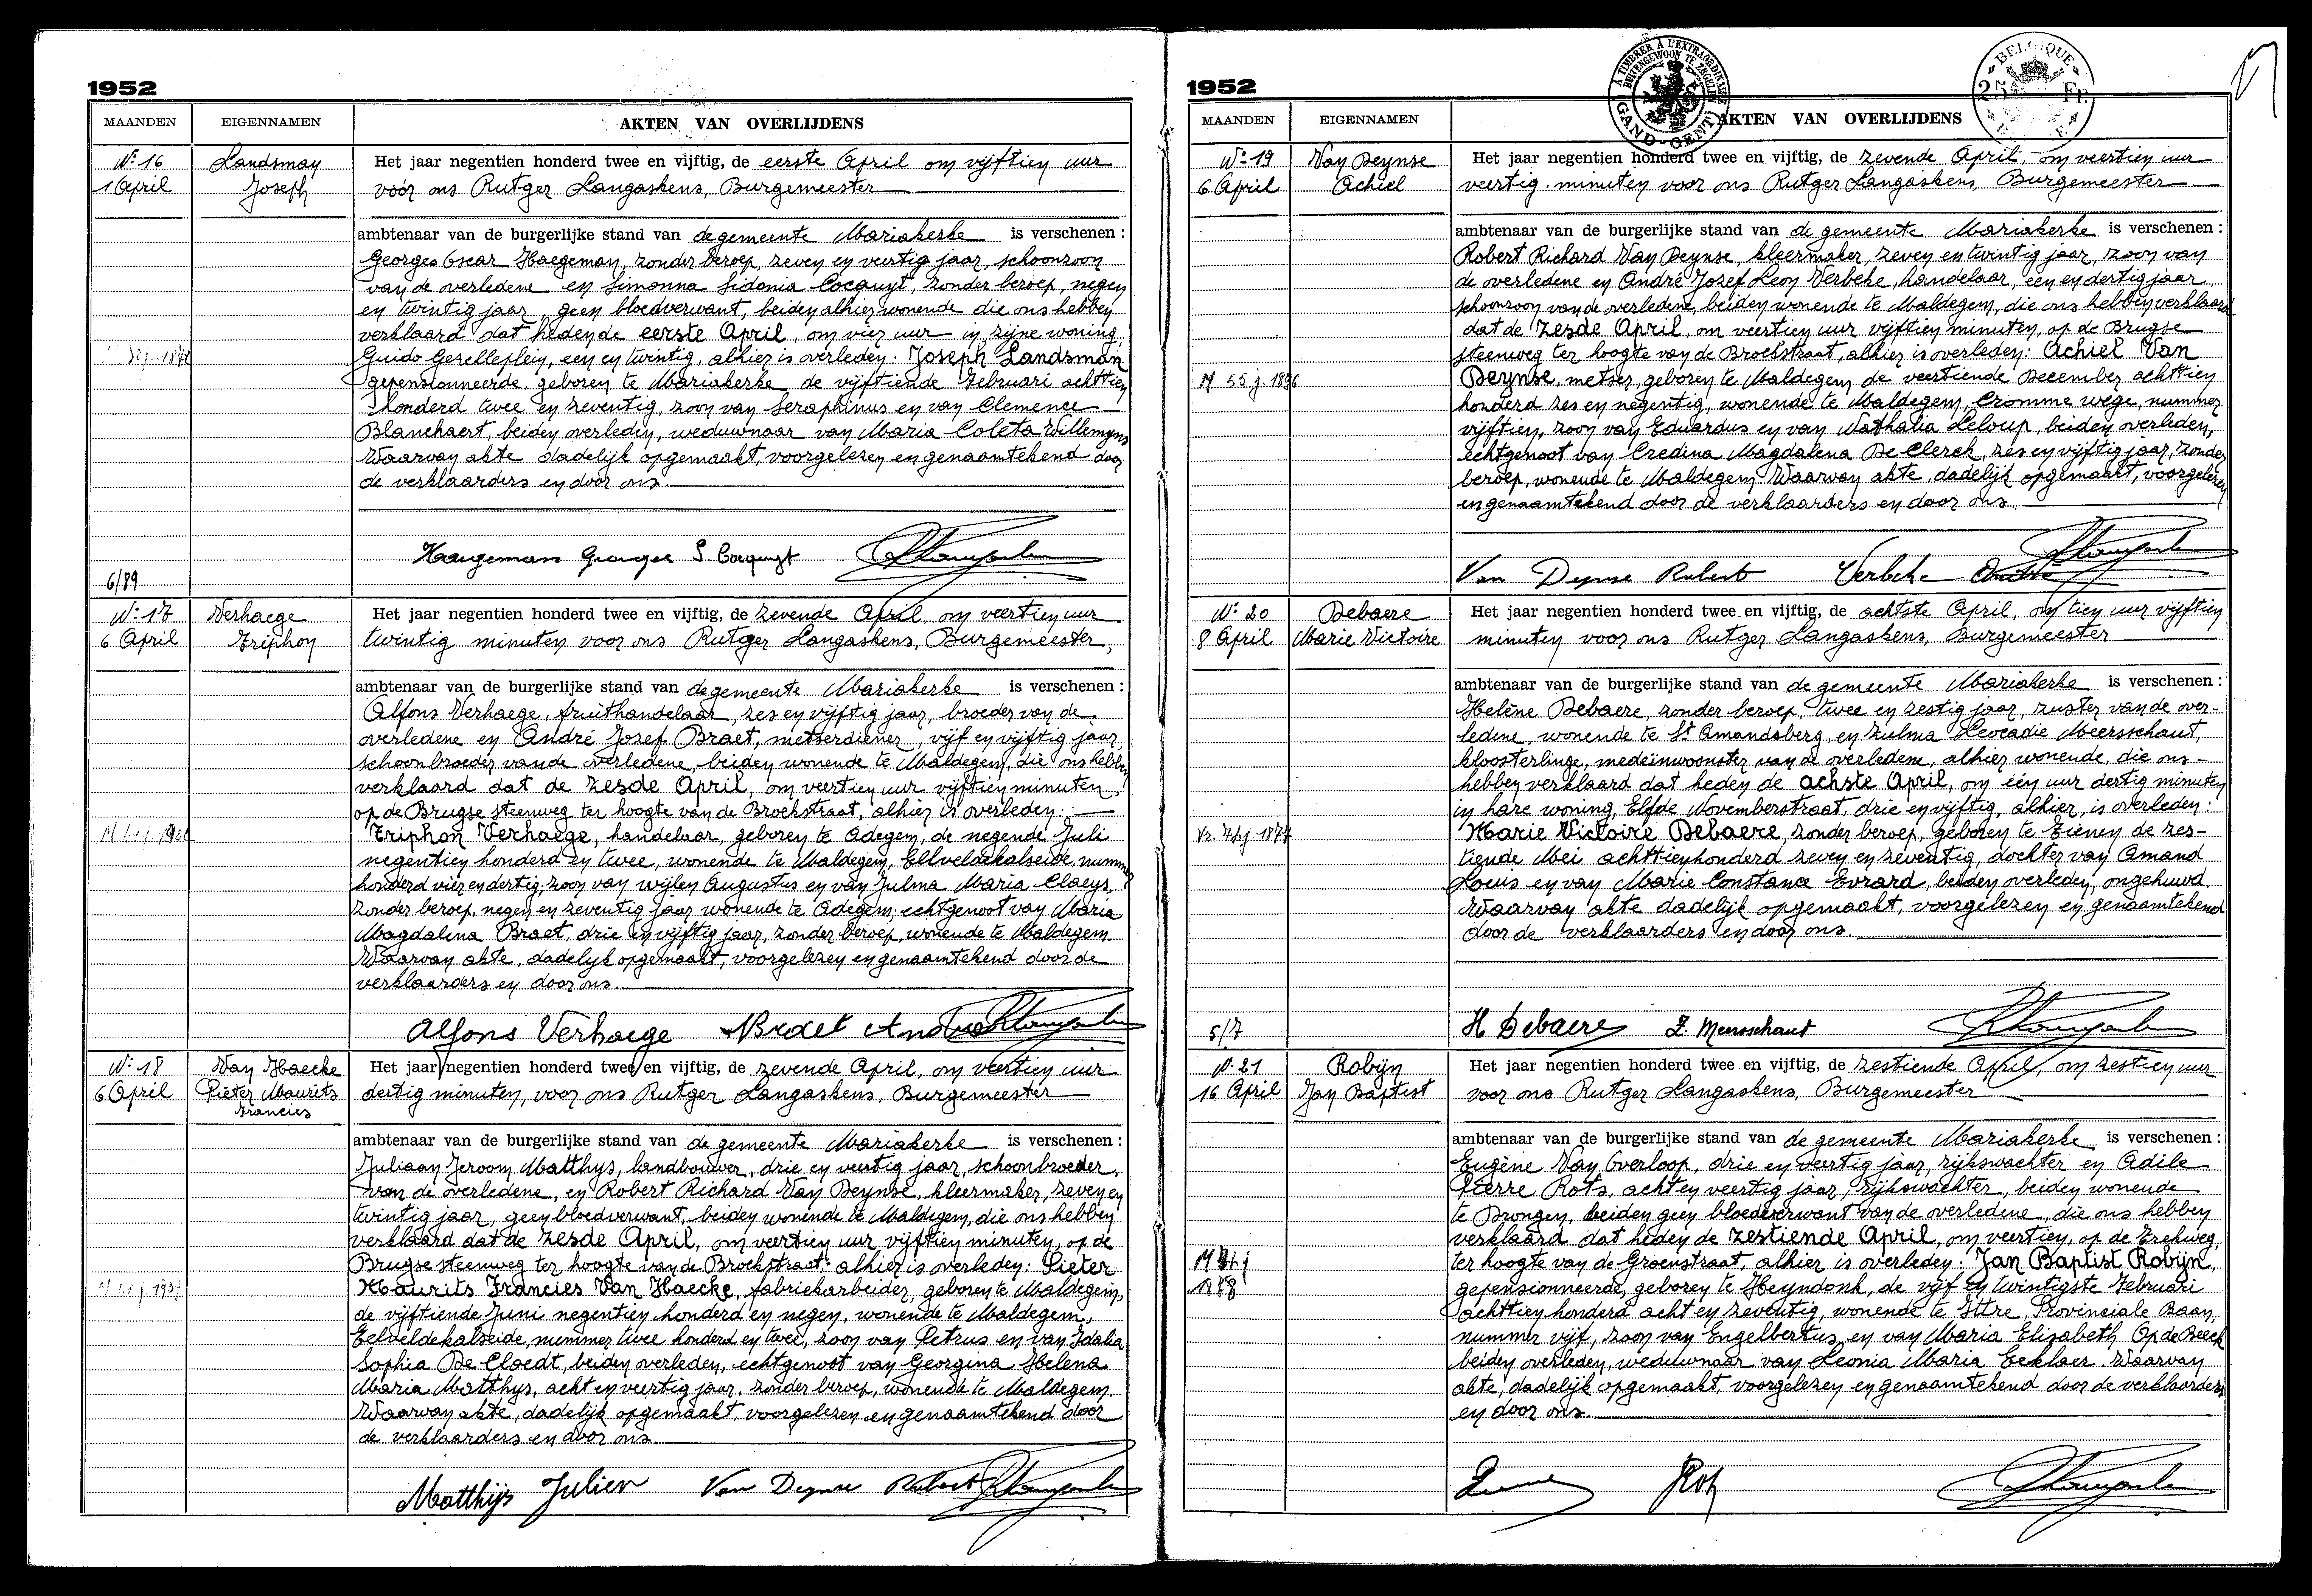 1952
MAANDEN EIGENNAMEN AKTEN VAN OVERLIJDENS
N° 16 Landsman Het jaar negentien honderd twee en vijftig, de eerste April om vijftien uur
1 April Joseph vóór ons Rutger Langaskens, Burgemeester
ambtenaar van de burgerlijke stand van de gemeente Mariakerke is verschenen :
Georges Oscar Haegeman, zonder beroep, zeven en veertig jaar, schoonzoon
van de overledene en Simonna Sidonia Cocquyt, zonder beroep, negen
en twintig jaar, geen bloedverwant, beiden alhier wonende die ons hebben
verklaard dat heden de eerste April, om vier uur in zijne woning,
Guido Gezelleplein, een en twintig, alhier is overleden: Joseph Landsman
gepensionneerde, geboren te Mariakerke de vijftiende Februari achttien
honderd twee en zeventig, zoon van Seraphinus en van Clemence
Blanckaert, beiden overleden, weduwnaar van Maria Coleta Willemyns
Waarvan akte dadelijk opgemaakt, voorgelezen en genaamtekend door
de verklaarders en door ons.
Haegemans Georges S. Cocquyt
6/89
N° 17 Verhaege Het jaar negentien honderd twee en vijftig, de zevende April, om veertien uur
6 April Triphon twintig minuten voor ons Rutger Langaskens, Burgemeester,
ambtenaar van de burgerlijke stand van de gemeente Mariakerke is verschenen :
Alfons Verhaege, fruithandelaar, zes en vijftig jaar, broeder van de
overledene en André Jozef Braet, metserdiener, vijf en vijftig jaar
schoonbroeder van de overledene, beiden wonende te Maldegem, die ons hebben
verklaard dat de zesde April, om veertien uur vijftien minuten,
op de Brugse steenweg ter hoogte van de Broekstraat, alhier is overleden:
Triphon Verhaege, handelaar, geboren te Adegem, de negende Juli
negentien honderd en twee, wonende te Maldegem, Eelveldekalseide, nummer
honderd vier en dertig, zoon van wijlen Augustus en van Julma Maria Claeys,
zonder beroep, negen en zeventig jaar wonende te Adegem; echtgenoot van Maria
Magdalena Braet, drie en vijftig jaar, zonder beroep, wonende te Maldegem.
Waarvan akte, dadelijk opgemaakt, voorgelezen en genaamtekend door de
verklaarders en door ons.
Alfons Verhaege Braet André
N° 18 Van Haecke Het jaar negentien honderd twee en vijftig, de zevende April, om veertien uur
6 April Pieter Maurits dertig minuten, voor ons Rutger Langaskens, Burgemeester
Francies
ambtenaar van de burgerlijke stand van de gemeente Mariakerke is verschenen :
Juliaan Jeroom Matthys, landbouwer, drie en veertig jaar, schoonbroeder
van de overledene, en Robert Richard Van Deynse, kleermaker, zeven en
twintig jaar, geen bloedverwant, beiden wonende te Maldegem, die ons hebben
verklaard dat de zesde April, om veertien uur vijftien minuten, op de
Brugse steenweg ter hoogte van de Broekstraat alhier is overleden: Pieter
Maurits Francies Van Haecke, fabriekarbeider, geboren te Maldegem,
de vijftiende Juni negentien honderd en negen, wonende te Maldegem,
Eelveldekalseide, nummer twee honderd en twee, zoon van Petrus en van Idalia
Sophia De Cloedt, beiden overleden, echtgenoot van Georgina Helena
Maria Matthys, acht en veertig jaar, zonder beroep, wonende te Maldegem.
Waarvan akte, dadelijk opgemaakt, voorgelezen en genaamtekend door
de verklaarders en door ons.
Matthijs Julien Van Deynse Robert
1952
A TIMBRER A L'EXTRAORDINAIRE
BUITENGEWOON TE ZEGELEN
GAND-GENT
BELGIQUE
25 Fr.
MAANDEN EIGENNAMEN AKTEN VAN OVERLIJDENS
N° 19 Van Deynse Het jaar negentien honderd twee en vijftig, de zevende April, om veertien uur
6 April Achiel veertig minuten voor ons Rutger Langaskens, Burgemeester
ambtenaar van de burgerlijke stand van de gemeente Mariakerke is verschenen :
Robert Richard Van Deynse, kleermaker, zeven en twintig jaar, zoon van
de overledene en André Jozef Leon Verbeke, handelaar, een en dertig jaar,
schoonzoon van de overledene, beiden wonende te Maldegem, die ons hebben verklaard
dat de zesde April, om veertien uur vijftien minuten, op de Brugse
steenweg ter hoogte van de Broekstraat, alhier is overleden: Achiel Van
M 55 j. 1896 Deynse, metser, geboren te Maldegem de veertiende December achttien
honderd zes en negentig, wonende te Maldegem, Cromme wege, nummer
vijftien, zoon van Eduardus en van Nathalia Leloup, beiden overleden,
echtgenoot van Credina Magdalena De Clerck, zes en vijftig jaar, zonder
beroep, wonende te Maldegem. Waarvan akte, dadelijk opgemaakt, voorgelezen
en genaamtekend door de verklaarders en door ons.
Van Deynse Robert Verbeke André
N° 20 Debaere Het jaar negentien honderd twee en vijftig, de achtste April, om tien uur vijftien
8 April Marie Victoire minuten voor ons Rutger Langaskens, Burgemeester
ambtenaar van de burgerlijke stand van de gemeente Mariakerke is verschenen :
Helène Debaere, zonder beroep, twee en zestig jaar, zuster van de over-
ledene, wonende te St Amandsberg, en Zulma Leocadie Meersschaut,
kloosterlinge, medeinwoonster van de overledene, alhier wonende, die ons
hebben verklaard dat heden de achste April, om één uur dertig minuten
in hare woning, Elfde Novemberstraat, drie en vijftig, alhier, is overleden:
Marie Victoire Debaere, zonder beroep, geboren te Tienen de zes-
tiende Mei achttienhonderd zeven en zeventig, dochter van Amand
Louis en van Marie Constance Evrard, beiden overleden, ongehuwd.
Waarvan akte dadelijk opgemaakt, voorgelezen en genaamtekend
door de verklaarders en door ons.
5/7 H Debaere Z. Meersschaut
N° 21 Robijn Het jaar negentien honderd twee en vijftig, de zestiende April, om zestien uur
16 April Jan Baptist voor ons Rutger Langaskens, Burgemeester
ambtenaar van de burgerlijke stand van de gemeente Mariakerke is verschenen :
Eugène Van Overloop, drie en veertig jaar, rijkswachter en Adile
Pierre Rots, acht en veertig jaar, rijkswachter, beiden wonende
te Drongen, beiden geen bloedverwant van de overledene, die ons hebben
verklaard dat heden de zestiende April, om veertien, op de Eekweg,
ter hoogte van de Groenstraat, alhier is overleden: Jan Baptist Robijn,
1878 gepensionneerde, geboren te Heyndonk, de vijf en twintigste Februari
achttien honderd acht en zeventig, wonende te Ittre, Provinciale Baan,
nummer vijf, zoon van Engelbertus en van Maria Elisabeth Op de Beeck
beiden overleden, weduwnaar van Leonia Maria Eeklaer. Waarvan
akte, dadelijk opgemaakt, voorgelezen en genaamtekend door de verklaarders
en door ons.
Rots